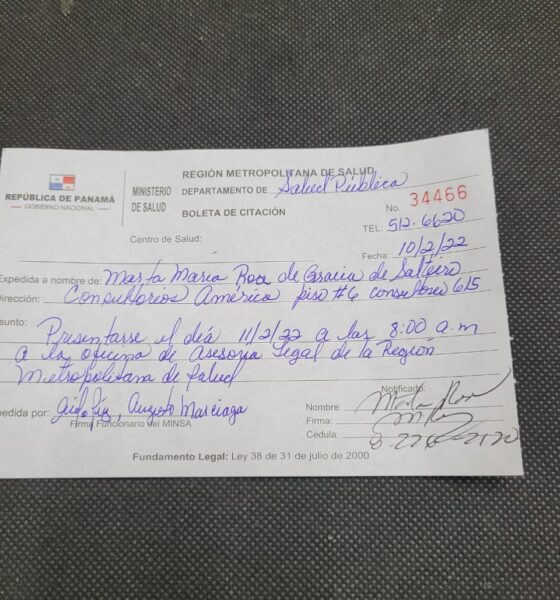 REPÚBLICA DE PANAMÁ
GOBIERNO NACIONAL
MINISTERIO
DE SALUD
REGIÓN METROPOLITANA DE SALUD
DEPARTAMENTO DE Salud Pública
BOLETA DE CITACIÓN
No. 34466
TEL: 512-6620
Centro de Salud:
Fecha: 10/2/22
Expedida a nombre de: Marta María Roa de
Dirección: Consultorios América piso #6 consultorio 615
sunto: Presentarse el día 11/2/22 a las 8:00 a.m
a la oficina de Asesoria Legal de la Región
Metropolitana de Salud
pedida por: Augusto Marciaga
Firma Funcionario del MINSA
Notificado:
Nombre: Marta Roa
Firma:
Cédula:
Fundamento Legal: Ley 38 de 31 de julio de 2000